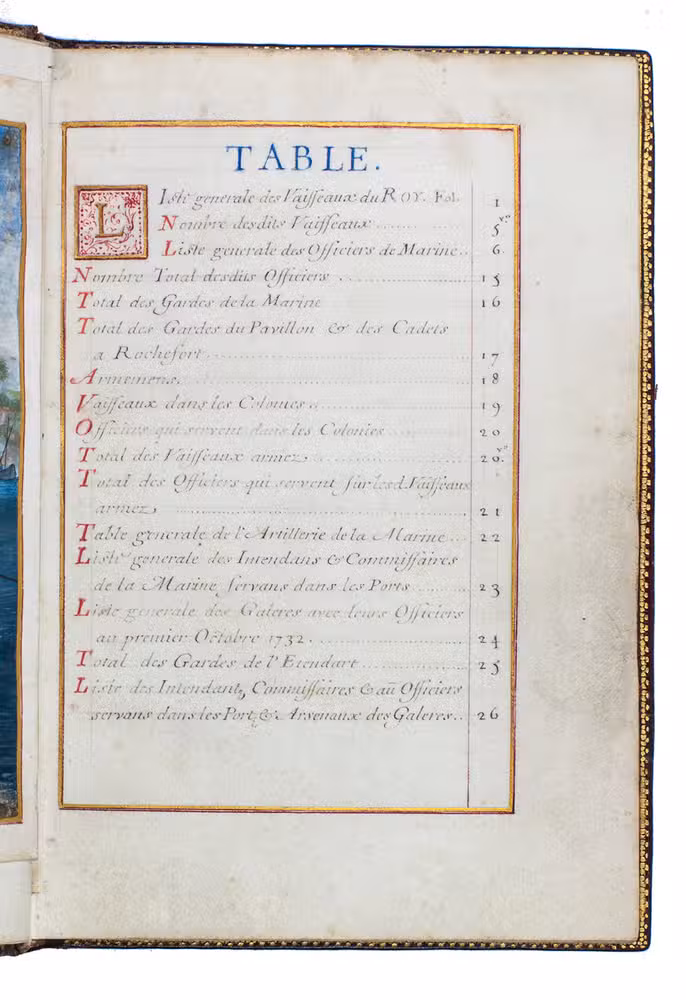 TABLE.
Liste generale des Vaisseaux du ROY. Fol. 1
Nombre desdits Vaisseaux 5 vo
Liste generale des Officiers de Marine.. 6.
Nombre Total desdits Officiers 15
Total des Gardes de la Marine 16
Total des Gardes du Pavillon & des Cadets
a Rochefort 17
Armemens. 18
Vaisseaux dans les Colonies.. 19
Officiers qui servent dans les Colonies 20
Total des Vaisseaux armez 20. vo
Total des Officiers qui servent sur lesd. Vaisseaux
armez 21
Table generale de l'Artillerie de la Marine 22
Liste generale des Intendans & Commissaires
de la Marine servans dans les Ports 23
Liste generale des Galeres avec leurs Officiers
au premier Octobre 1732. 24
Total des Gardes de l'Etendart 25
Liste des Intendant, Commissaires & au Officiers
servans dans les Port, & Arsenaux des Galeres.. 26